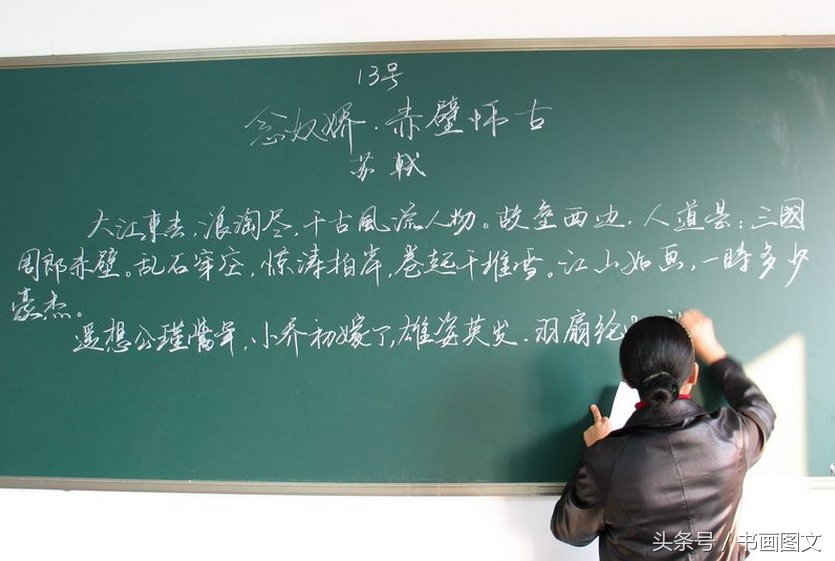 13号
念奴娇·赤壁怀古
苏轼
大江東去,浪淘尽,千古風流人物。故垒西边,人道是:三國
周郎赤壁。乱石穿空,惊涛拍岸,卷起千堆雪。江山如画,一時多少
豪杰。
遥想公瑾當年,小乔初嫁了,雄姿英发.羽扇纶
头条号/书画图文